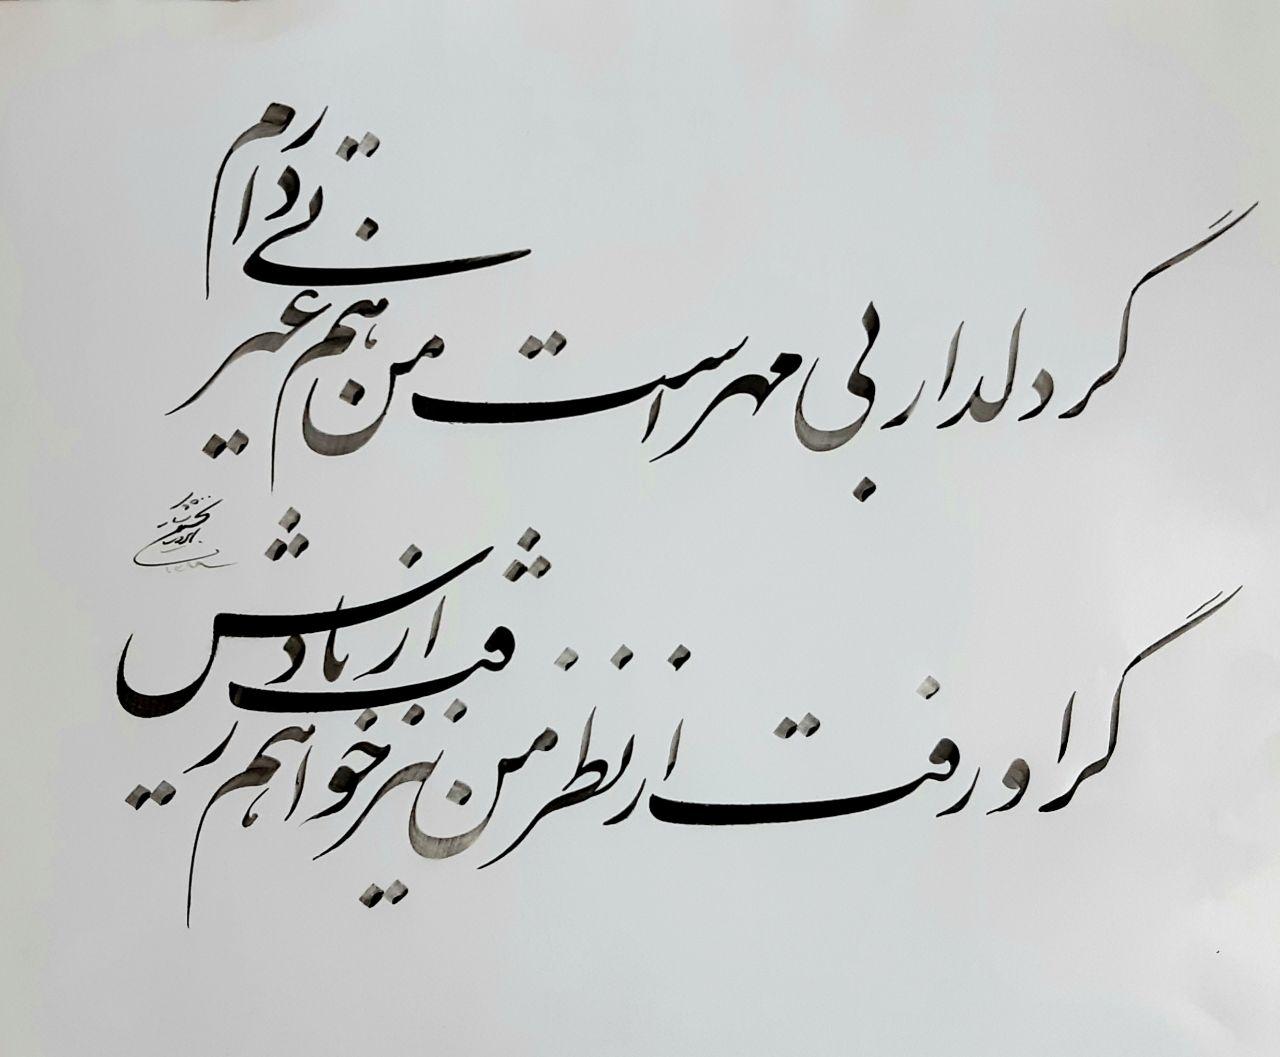 گر دلدار بی مهر است من هم غیرتی دارم
گر او رفت از نظر من نیز خواهم رفت از یادش